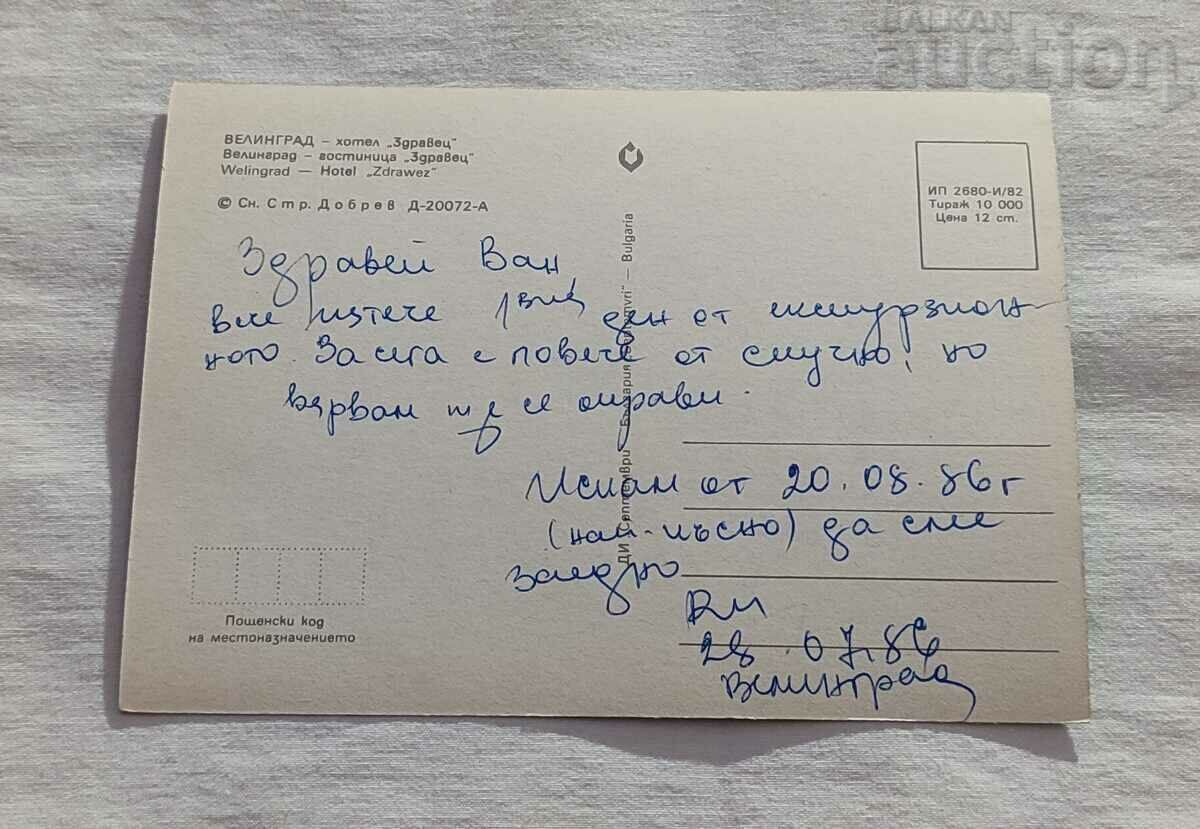 BALKAN
auction
ВЕЛИНГРАД – хотел „Здравец"
Велинград – гостиница „Здравец"
Welingrad — Hotel „Zdrawez"
© Сн. Стр. Добрев Д-20072-А
ИП 2680-И/82
Тираж 10 000
Цена 12 ст.
Здравей Ван
вече изтече 1вия ден от
ното. Засега е повече от скучно, но
вярвам ще се оправи.
Искам от 20.08.86г
(най-късно) да сме
заедно
28.07.86
Велинград
ДИ Септември България — Bulgaria
Пощенски код
на местоназначението